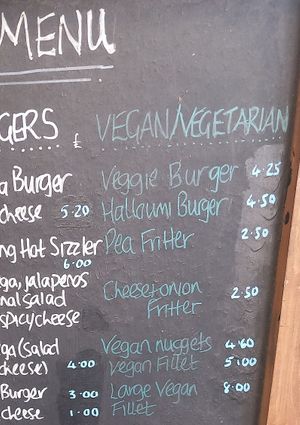 MENU
GERS £ VEGAN/VEGETARIAN
a Burger
cheese 5.20
ng Hot Sizzler
6.00
ga, jalapenos
nal salad
spicy cheese
ga (salad
cheese) 4.00
Burger 3.00
cheese 1.00
Veggie Burger 4.25
Halloumi Burger 4.50
Pea Fritter 2.50
Cheese + onion
Fritter 2.50
Vegan nuggets 4.60
Vegan Fillet 5.00
Large Vegan 8.00
Fillet